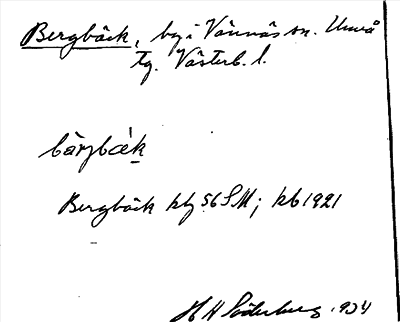 Bergbäck, by i Vännäs sn. Umeå
tg. Västerb. l.
bàrjbæ̀k
Bergbäck kbj 56 SM; kb 1921
H H Söderberg 1934